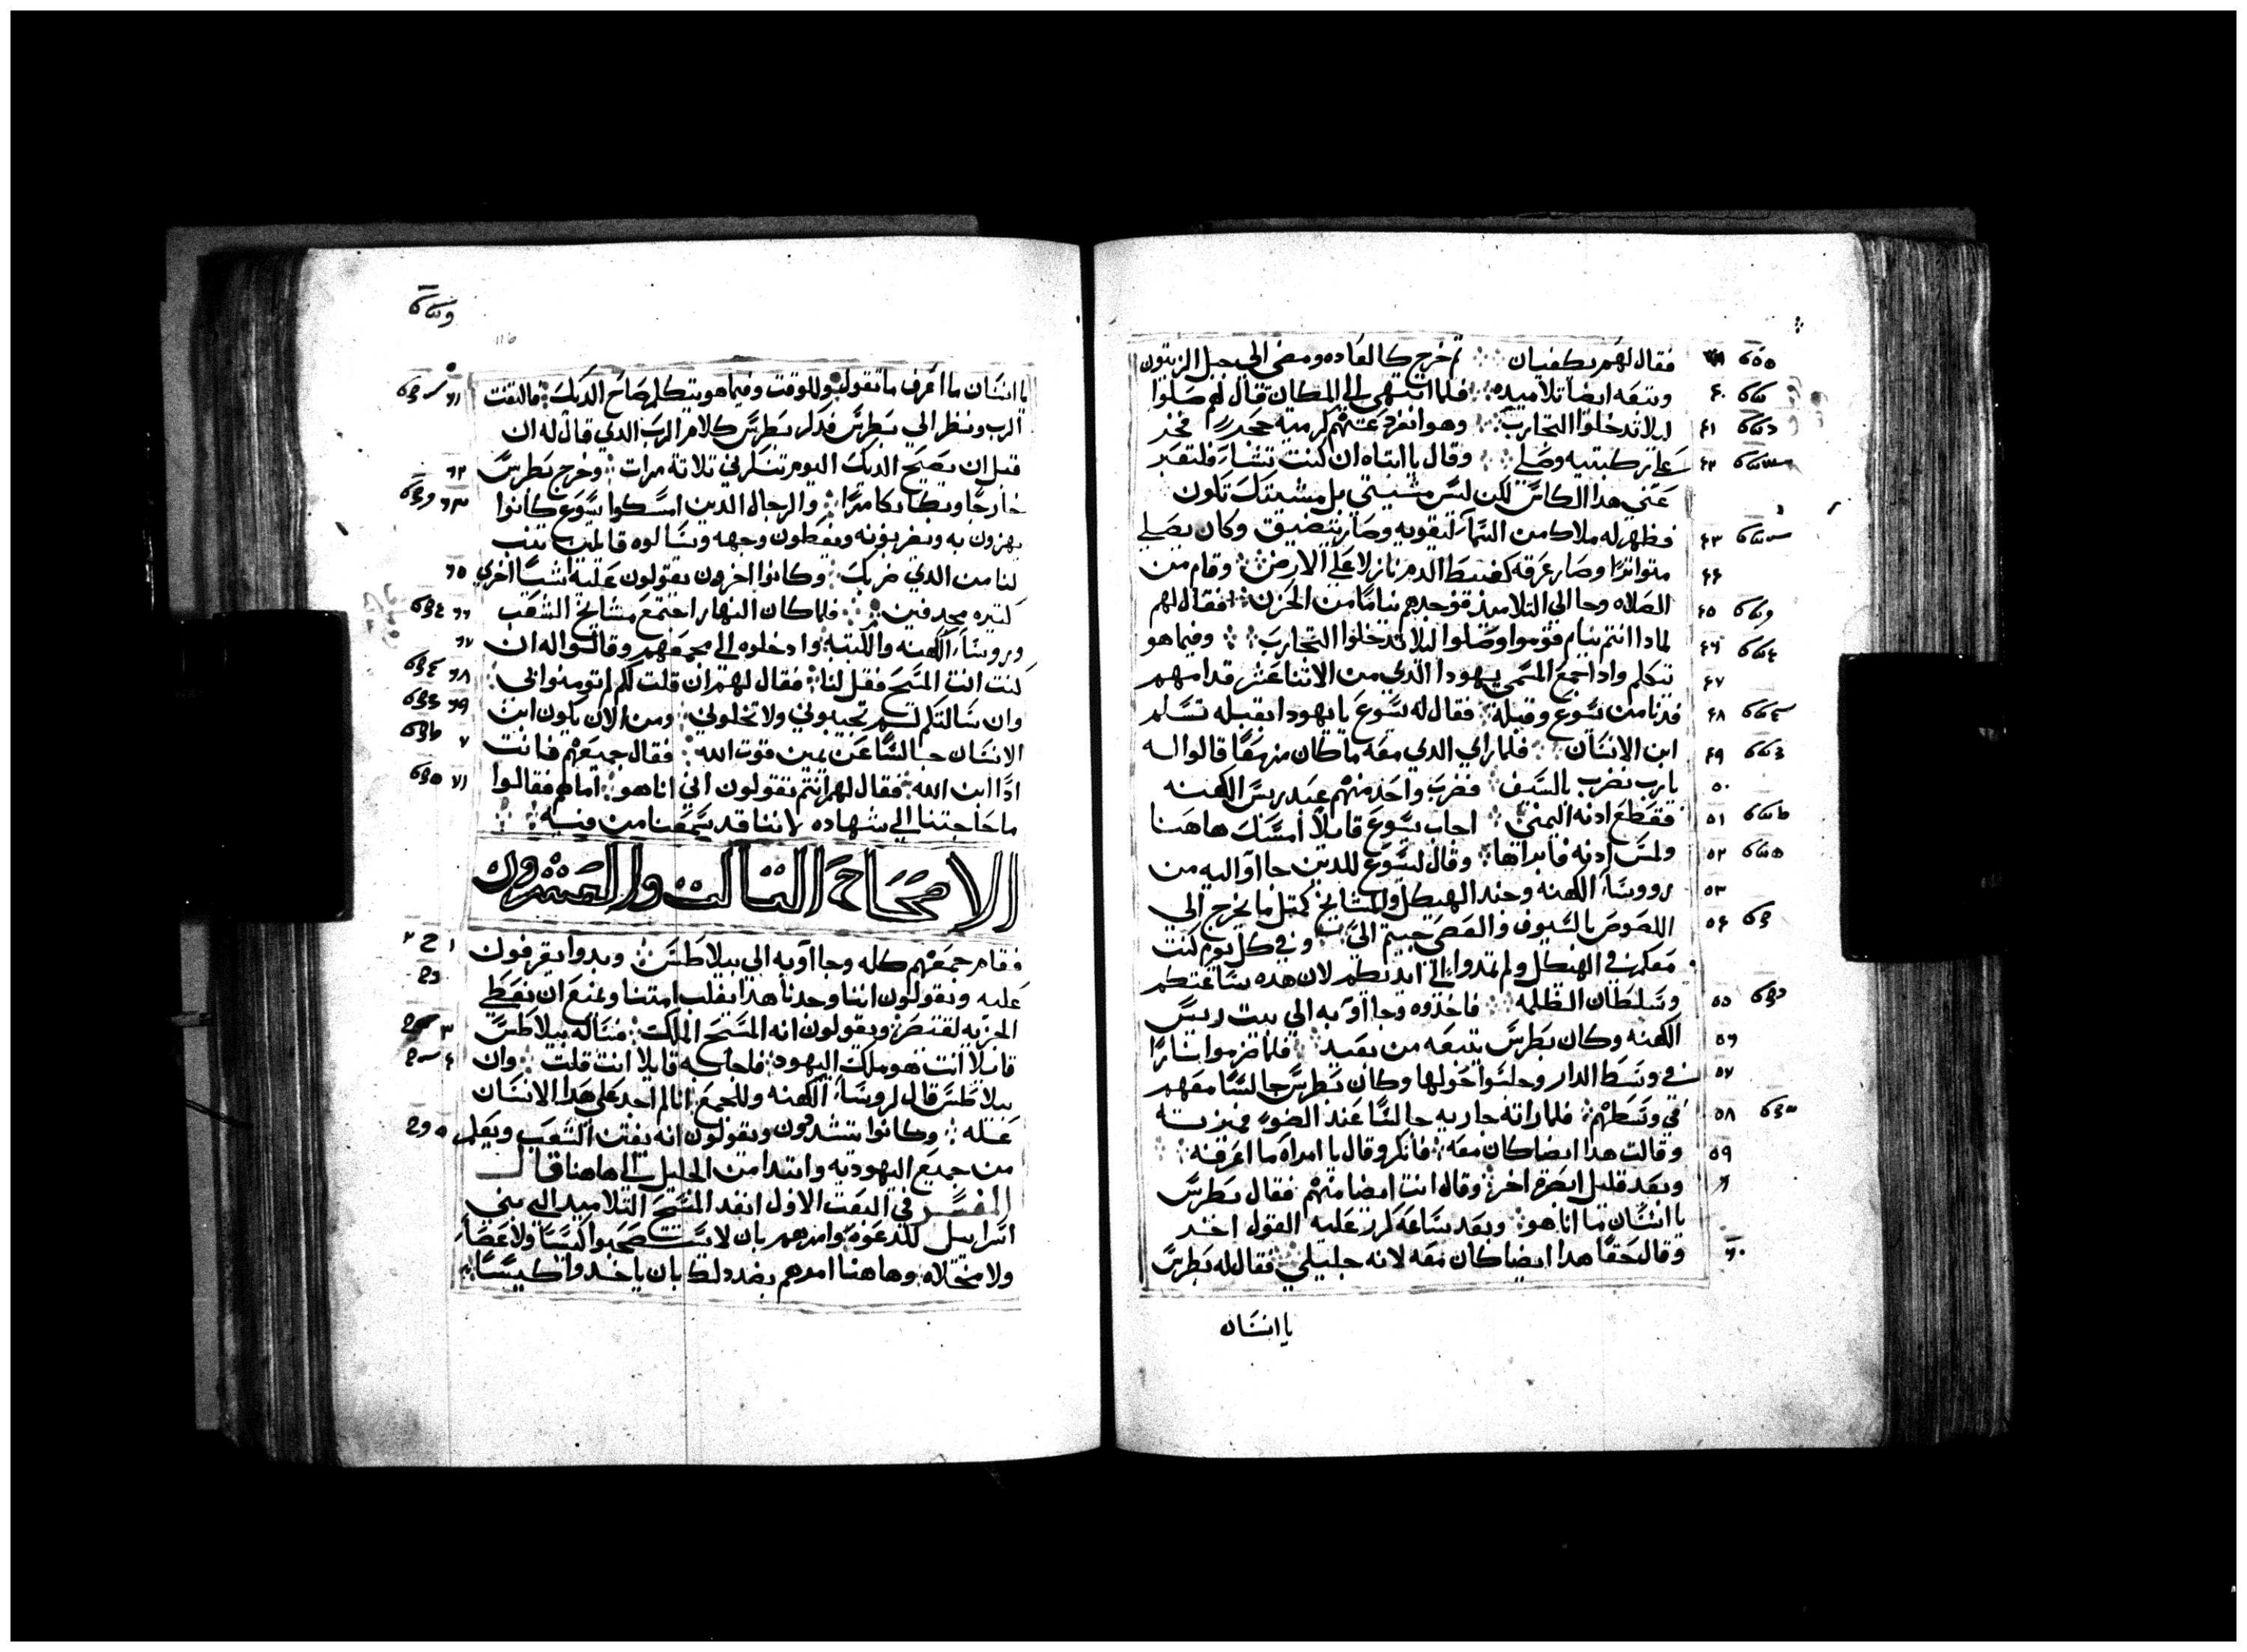 فقال لهم يكفيان ثم خرج كالعاده ومضى الى جبل الزيتون
وتبعه ايضا تلاميده فلما انتهى الى المكان قال لهم صلوا
ليلا تدخلوا التجارب وهو انفرد عنهم كرميه حجر
على ركبتيه وصلي وقال يا ابتاه ان كنت تشا فلتعبر
عني هدا الكاس لكن ليس مشيتي بل مشيتك تكون
فظهر له ملاك من السما ليقويه وصار يتضيق وكان يصلي
متواترا وصار عرقه كعبيط الدم نازلا على الارض وقام من
الصلاه وجا الي التلاميد فوجدهم نياما من الحزن فقال لهم
لمادا انتم نيام قوموا وصلوا ليلا تدخلوا التجارب وفيما هو
يتكلم وادا جمع المسمى يهودا الدي من الاتنا عشر قدامهم
فدنا من يسوع وقبله فقال له يسوع يا يهودا ابقبله تسلم
ابن الانسان فلما راي الدي معه ما كان منهم قالوا له
يا رب نضرب بالسيف فضرب واحد منهم عبد ريس الكهنه
فقطع ادنه اليمني اجاب يسوع قايلا امسك هاهنا
ولمس ادنه فابراها وقال يسوع للدين جااوا اليه من
رووسا الكهنه وجند الهيكل والمشايخ كمتل ما يخرج الي
اللصوص بالسيوف والعصي جيتم الي وفي كل يوم كنت
معكم في الهيكل ولم تمدوا الي ايديكم لان هده ساعتكم
وسلطان الظلمه فاخدوه وجااوا به الي بيت ريس
الكهنه وكان بطرس يتبعه من بعيد فلما اضرموا نارا
في وسط الدار وجلسوا حولها وكان بطرس جالسا معهم
في وسطهم فلما راته جاريه جالسا عند الضو
وقالت هدا ايضا كان معه فانكر وقال يا امراه ما اعرفه
وبعد قليل ابصره اخر وقال انت ايضا منهم فقال بطرس
يا انسان ما انا هو وبعد ساعه كرر عليه القول اخد
وقال حقا هدا ايضا كان معه لانه جليلي فقال له بطرس
يا انسان
يا انسان ما اعرف ما تقول وللوقت وفيما هو يتكلم صاح الديك فالتفت
الرب ونظر الي بطرس فدكر بطرس كلام الرب الدي قال له ان
قبل ان يصيح الديك اليوم تنكرني تلاتة مرات وخرج بطرس
خارجا وبكا بكا مرا والرجال الدين امسكوا يسوع كانوا
يهزون به ويضربونه ويغطون وجهه ويسالوه قايلين تنب
لنا من الدي ضربك وكانوا اخرون يقولون عليه اشيا اخري
كتيره مجدفين فلما كان النهار اجتمع مشايخ الشعب
ورووسا الكهنه والكتبه وادخلوه الي مجمعهم وقالوا له ان
كنت انت المسيح فقل لنا فقال لهم ان قلت لكم لم تومنوا بي
وان سالتكم لم تجيبوني ولا تخلوني ومن الان يكون ابن
الانسان جالسا عن يمين قوت الله فقال جميعهم فانت
ادا ابن الله فقال لهم انتم تقولون اني انا هو اما هم فقالوا
ما حاجتنا الي شهاده لاننا قد سمعنا من فيه
الاصحاح التالت والعشرون
فقام جمعهم كله وجااوا به الي بيلاطس وبدوا يقرفون
عليه ويقولون اننا وجدنا هدا يقلب امتنا ويمنع ان نعطي
الجزيه لقيصر ويقولون انه المسيح الملك فساله بيلاطس
قايلا انت هو ملك اليهود فاجابه قايلا انت قلت وان
بيلاطس قال لروسا الكهنه وللجمع انا لم اجد على هدا الانسان
عله وكانوا يتشددون ويقولون انه يفتن الشعب ويعلم
من جميع اليهوديه وابتدا من الجليل الي هاهنا قال
المفسر في البعت الاول انفد المسيح التلاميد الي بني
اسراييل للدعوه وامرهم بان لا يستصحبوا كيسا ولا عصا
ولا مخلاه وهاهنا امرهم بضد دلك بان ياخدوا كيسا